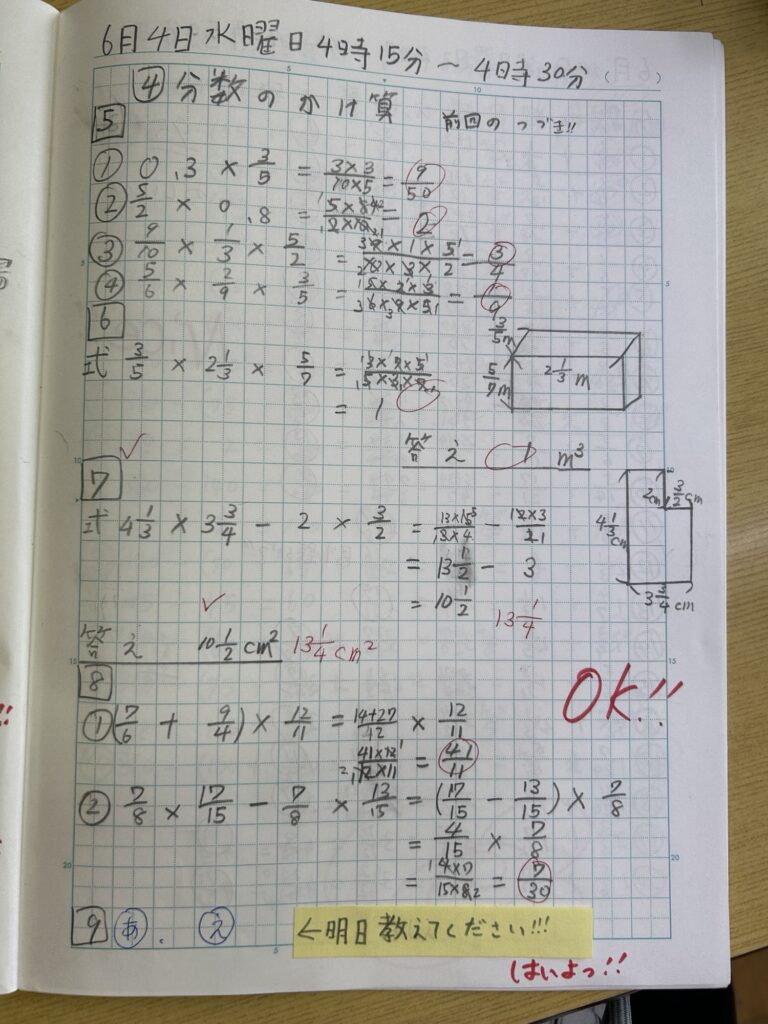 6月4日水曜日 4時15分 〜 4時30分
④ 分数のかけ算 前回のつづき!!
5
① 0.3 × 3/5 = 3×3/10×5 = 9/50
② 5/2 × 0.8 = 5×8/2×10 = 2
③ 9/10 × 1/3 × 5/2 = 9×1×5/10×3×2 = 3/4
④ 5/6 × 2/9 × 3/5 = 5×2×3/6×9×5 = 1/9
6
3/5m 5/7m 2 1/3 m
式 3/5 × 2 1/3 × 5/7 = 3×7×5/5×3×7
= 1
答え 1 m³
7
2cm 3/2cm 4 1/3 cm 3 3/4 cm
式 4 1/3 × 3 3/4 − 2 × 3/2 = 13×15/3×4 − 2×3/2
= 13 1/2 − 3
= 10 1/2 13 1/4
答え 10 1/2 cm² 13 1/4 cm²
8
OK!!
① (7/6 + 9/4) × 12/11 = 14+27/12 × 12/11
41×12/12×11 = 41/11
② 7/8 × 17/15 − 7/8 × 13/15 = (17/15 − 13/15) × 7/8
= 4/15 × 7/8
= 4×7/15×8 = 7/30
9 あ. え ←明日教えてください!!!
はいよっ!!